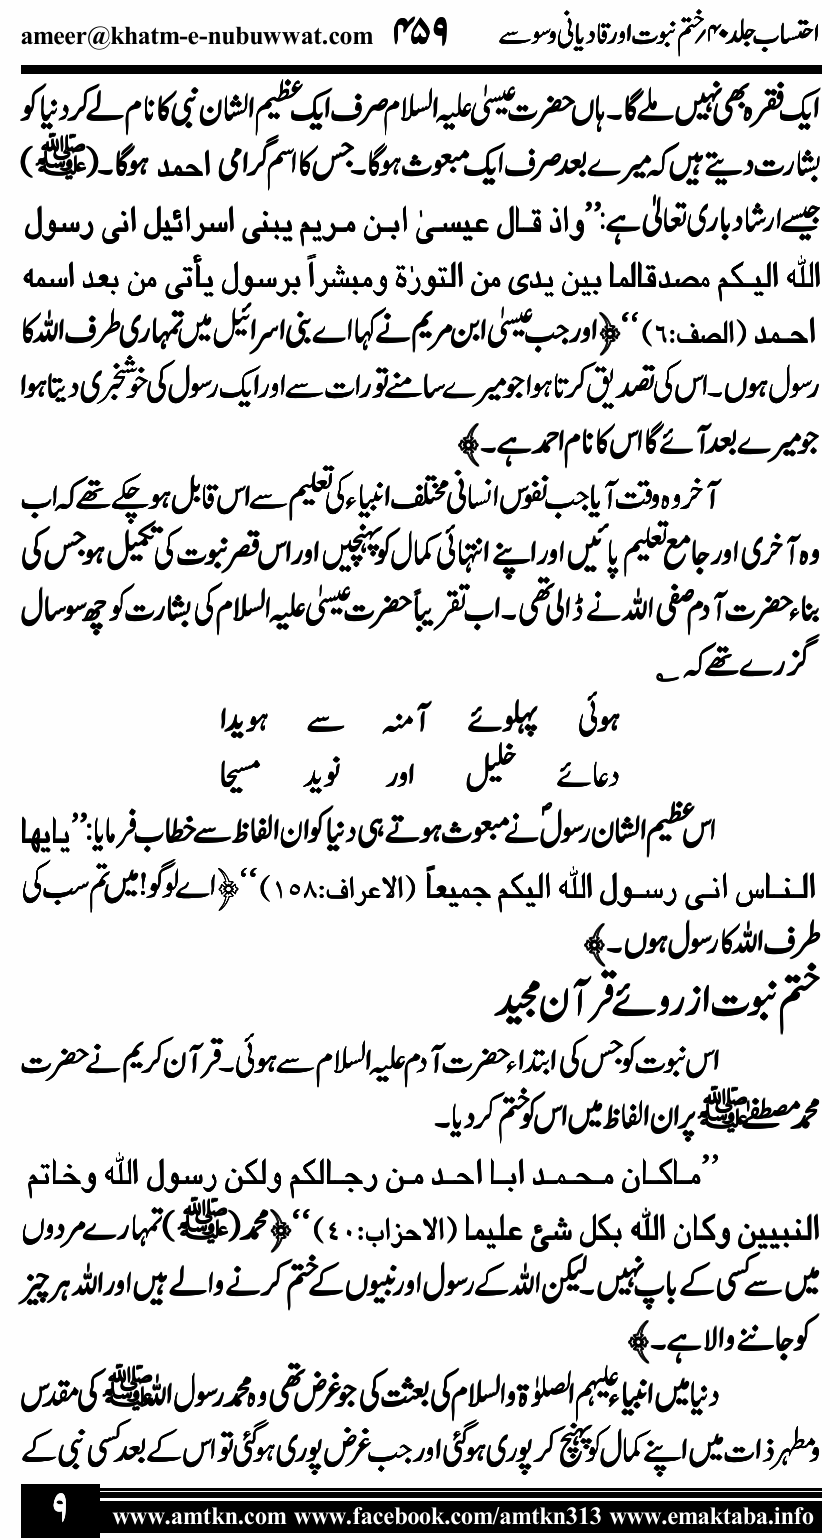 احتساب جلد ۴۰؍ختم نبوت اور قادیانی وسوسے ۴۵۹ ameer@khatm-e-nubuwwat.com
ایک فقرہ بھی نہیں ملے گا۔ ہاں حضرت عیسیٰ علیہ السلام صرف ایک عظیم الشان نبی کا نام لے کر دنیا کو
بشارت دیتے ہیں کہ میرے بعد صرف ایک مبعوث ہوگا۔ جس کا اسم گرامی احمد ہوگا۔ (ﷺ)
جیسے ارشاد باری تعالیٰ ہے: ’’واذ قال عیسیٰ ابن مریم یبنی اسرائیل انی رسول
اللہ الیکم مصدقالما بین یدی من التورٰۃ ومبشراً برسول یأتی من بعد اسمہ
احمد (الصف:٦)‘‘ ﴿اور جب عیسیٰ ابن مریم نے کہا اے بنی اسرائیل میں تمہاری طرف اللہ کا
رسول ہوں۔ اس کی تصدیق کرتا ہوا جو میرے سامنے تورات سے اور ایک رسول کی خوشخبری دیتا ہوا
جو میرے بعد آئے گا اس کا نام احمد ہے۔﴾
آخر وہ وقت آیا جب نفوس انسانی مختلف انبیاء کی تعلیم سے اس قابل ہوچکے تھے کہ اب
وہ آخری اور جامع تعلیم پائیں اور اپنے انتہائی کمال کو پہنچیں اور اس قصر نبوت کی تکمیل ہو جس کی
بناء حضرت آدم صفی اللہ نے ڈالی تھی۔ اب تقریباً حضرت عیسیٰ علیہ السلام کی بشارت کو چھ سو سال
گزرے تھے کہ ؎
ہوئی پہلوئے آمنہ سے ہویدا
دعائے خلیل اور نوید مسیحا
اس عظیم الشان رسولؐ نے مبعوث ہوتے ہی دنیا کو ان الفاظ سے خطاب فرمایا: ’’یایہا
الناس انی رسول اللہ الیکم جمیعاً (الاعراف:١٥٨)‘‘ ﴿اے لوگو! میں تم سب کی
طرف اللہ کا رسول ہوں۔﴾
ختم نبوت از روئے قرآن مجید
اس نبوت کو جس کی ابتداء حضرت آدم علیہ السلام سے ہوئی۔ قرآن کریم نے حضرت
محمد مصطفےٰ ﷺ پر ان الفاظ میں اس کو ختم کر دیا۔
’’ماکان محمد ابا احد من رجالکم ولکن رسول اللہ وخاتم
النبیین وکان اللہ بکل شئ علیما (الاحزاب:٤٠)‘‘ ﴿محمد (ﷺ) تمہارے مردوں
میں سے کسی کے باپ نہیں۔ لیکن اللہ کے رسول اور نبیوں کے ختم کرنے والے ہیں اور اللہ ہر چیز
کو جاننے والا ہے۔﴾
دنیا میں انبیاء علیہم الصلوٰۃ والسلام کی بعثت کی جو غرض تھی وہ محمد رسول اللہ ﷺ کی مقدس
ومطہر ذات میں اپنے کمال کو پہنچ کر پوری ہوگئی اور جب غرض پوری ہوگئی تو اس کے بعد کسی نبی کے
۹ www.amtkn.com www.facebook.com/amtkn313 www.emaktaba.info